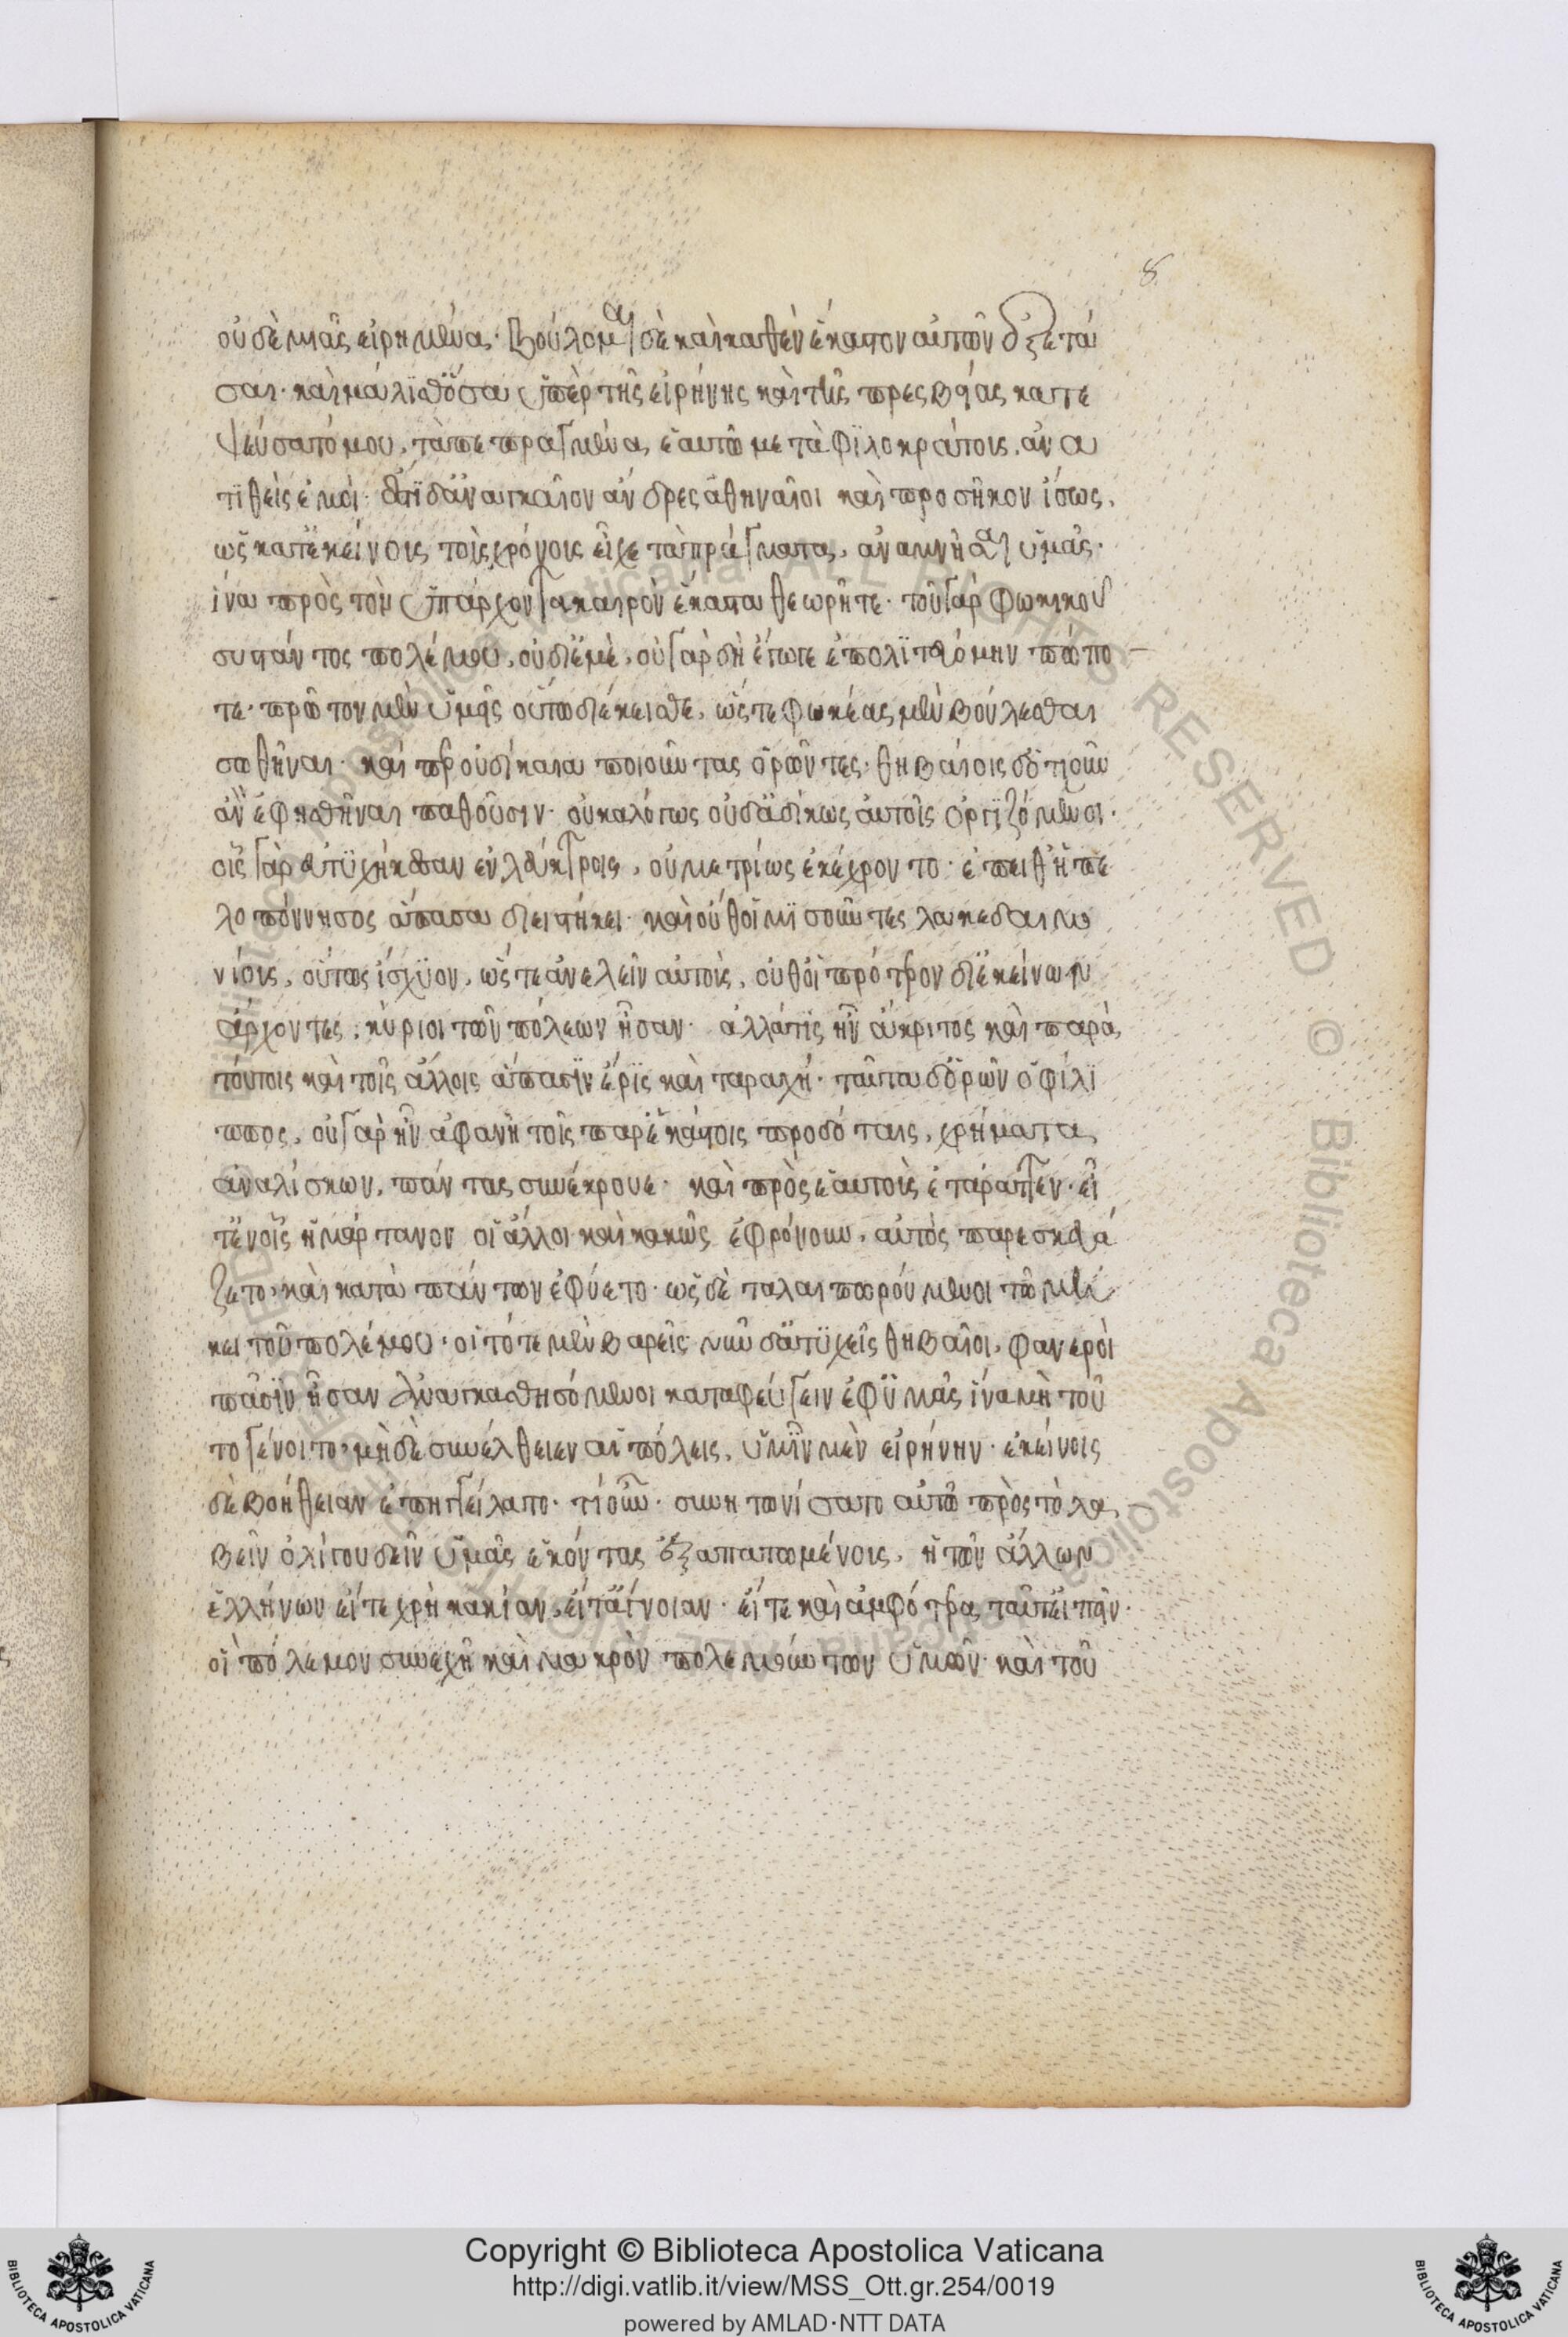 8
οὐδεμιᾶς εἰρημένα· Βούλομαι δὲ καὶ καθὲν ἕκαστον αὐτῶν ἐξετά
σαι· καὶ μάλισθ ὅσα ὑπὲρ τῆς εἰρήνης καὶ τῆς πρεσβείας κατε
ψεύσατό μου, τὰ πεπραγμένα ἑαυτῷ μετὰ φιλοκράτους, ἀνα
τιθεὶς ἐμοί· ἔστι δ ἀναγκαῖον ἄνδρες ἀθηναῖοι καὶ προσῆκον ἴσως,
ὡς κατ ἐκείνους τοὺς χρόνους εἶχε τὰ πράγματα, ἀναμνῆσαι ὑμᾶς·
ἵνα πρὸς τὸν ὑπάρχοντα καιρὸν ἕκαστα θεωρῆτε· τοῦ γὰρ φωκικοῦ
συστάντος πολέμου, οὐ δι ἐμὲ, οὐ γὰρ δὴ ἔγωγε ἐπολιτευόμην πώπο
τε· πρῶτον μὲν ὑμεῖς οὕτω διέκεισθε, ὥστε φωκέας μὲν βούλεσθαι
σωθῆναι· καίπερ οὐ δίκαια ποιοῦντας ὁρῶντες· θηβαίοις δ ὁτιοῦν
ἂν ἐφησθῆναι παθοῦσιν· οὐκ ἀλόγως οὐδ ἀδίκως αὐτοῖς ὀργιζόμενοι·
οἷς γὰρ εὐτυχήκεσαν ἐν λεύκτροις, οὐ μετρίως ἐκέχρηντο· ἔπειθ ἡ πε
λοπόννησος ἅπασα διειστήκει· καὶ οὔθ οἱ μισοῦντες λακεδαιμο
νίους, οὕτως ἴσχυον, ὥστε ἀνελεῖν αὐτοὺς, οὔθ οἱ πρότερον δι ἐκείνων
ἄρχοντες, κύριοι τῶν πόλεων ἦσαν· ἀλλά τις ἦν ἄκριτος καὶ παρὰ
τούτοις καὶ τοῖς ἄλλοις ἅπασιν ἔρις καὶ ταραχή· ταῦτα δ ὁρῶν ὁ φίλι
ππος, οὐ γὰρ ἦν ἀφανῆ τοῖς παρ ἑκάστοις προδόταις, χρήματα
ἀναλίσκων, πάντας συνέκρουε· καὶ πρὸς ἑαυτοὺς ἐτάραττεν· εἶ
τ ἐν οἷς ἡμάρτανον οἱ ἄλλοι καὶ κακῶς ἐφρόνουν, αὐτὸς παρεσκευά
ζετο, καὶ κατὰ πάντων ἐφύετο· ὡς δὲ ταλαιπωρούμενοι τῷ μή
κει τοῦ πολέμου, οἱ τότε μὲν βαρεῖς νῦν δ ἀτυχεῖς θηβαῖοι, φανεροὶ
πᾶσιν ἦσαν ἀναγκασθησόμενοι καταφεύγειν ἐφ ὑμᾶς ἵνα μὴ τοῦ
το γένοιτο, μὴ δὲ συνέλθειεν αἱ πόλεις, ὑμῖν μὲν εἰρήνην· ἐκείνοις
δὲ βοήθειαν ἐπηγγείλατο· τί οὖν· συνηγωνίσατο αὐτῷ πρὸς τὸ λα
βεῖν ὀλίγου δεῖν ὑμᾶς ἑκόντας ἐξαπατωμένους, ἡ τῶν ἄλλων
ἑλλήνων εἴτε χρὴ κακίαν, εἴτ ἄγνοιαν· εἴτε καὶ ἀμφότερα ταῦτ εἰπεῖν·
οἳ πόλεμον συνεχῆ καὶ μακρὸν πολεμούντων ὑμῶν· καὶ τοῦ
Copyright © Biblioteca Apostolica Vaticana
http://digi.vatlib.it/view/MSS_Ott.gr.254/0019
powered by AMLAD·NTT DATA